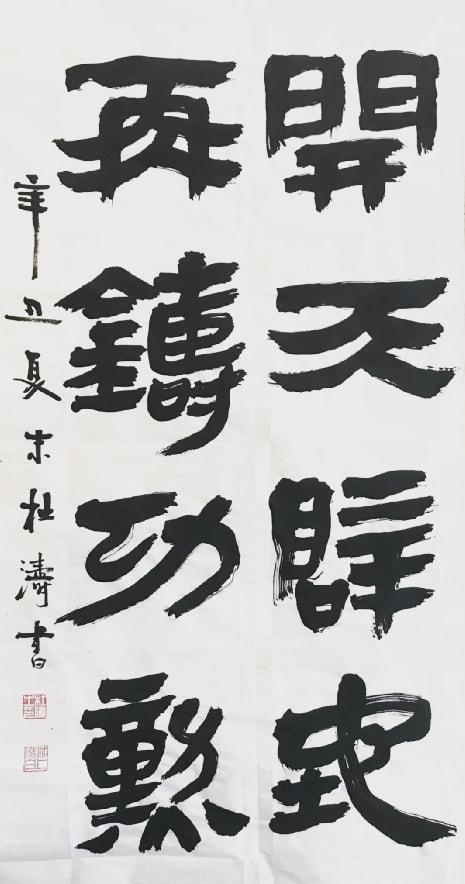 開天辟地
再鑄功勳
辛丑夏末杜濤書